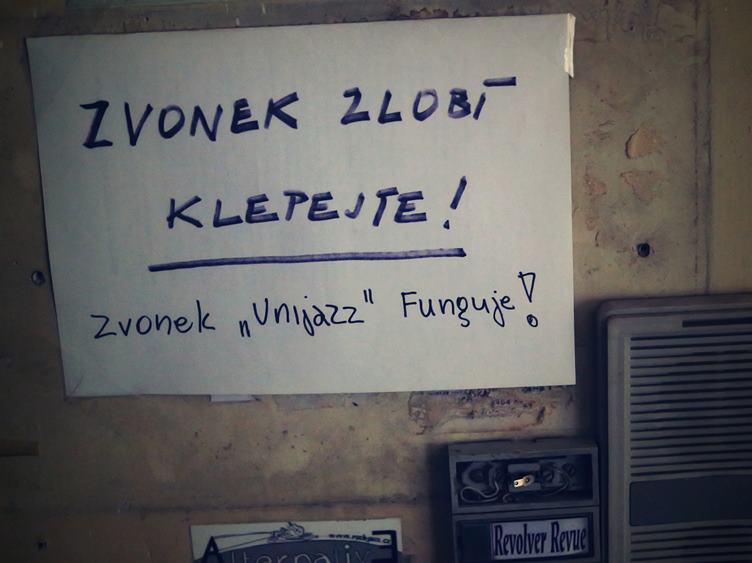 ZVONEK ZLOBÍ
KLEPEJTE!
Zvonek „Unijazz" Funguje!
Revolver Revue